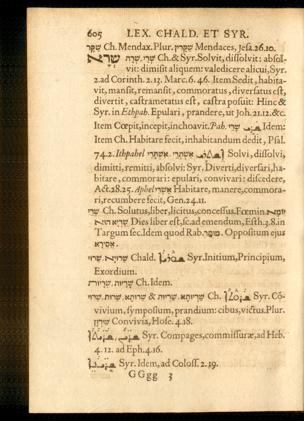 605 LEX. CHALD. ET SYR.
שַׁקָּר Ch. Mendax. Plur. שַׁקָּרִין Mendaces, Jesa. 26. 10.
שְׁרָא שְׁרָה, שְׁרֵי Ch. & Syr. Solvit, dissolvit: absol-
vit: dimisit aliquem: valedicere alicui, Syr.
2. ad Corinth. 2. 13. Marc. 6. 46. Item. Sedit, habita-
vit, mansit, remansit, commoratus, diversatus est,
divertit, castrametatus est, castra posuit: Hinc &
Syr. in Ethpah. Epulari, prandere, ut Joh. 21. 12. &c.
Item Cœpit, incepit, inchoavit. Pah. שָׁרִי Idem:
Item Ch. Habitare fecit, inhabitandum dedit, Psal.
74. 2. Ithpahel אִשְׁתְּרִי Solvi, dissolvi,
dimitti, remitti, absolvi: Syr. Diverti, diversari, ha-
bitare, commorari: epulari, convivari: discedere,
Act. 28. 25. Aphel אַשְׁרִי Habitare, manere, commora-
ri, recumbere fecit, Gen. 24. 11.
Ch. Solutus, liber, licitus, concessus. Fœmin.
Dies liber est, sc. ad emendum, Esth. 3. 8. in
Targum sec. Idem quod Rab. מותר. Oppositum ejus
אסירא.
Chald. Syr. Initium, Principium,
Exordium.
Ch. Idem.
Ch. Syr. Cō-
vivium, symposium, prandium: cibus, victus. Plur.
Convivia, Hose. 4. 18.
Syr. Compages, commissuræ, ad Heb.
4. 12. ad Eph. 4. 16.
Syr. Idem, ad Coloss. 2. 19.
GGgg 3